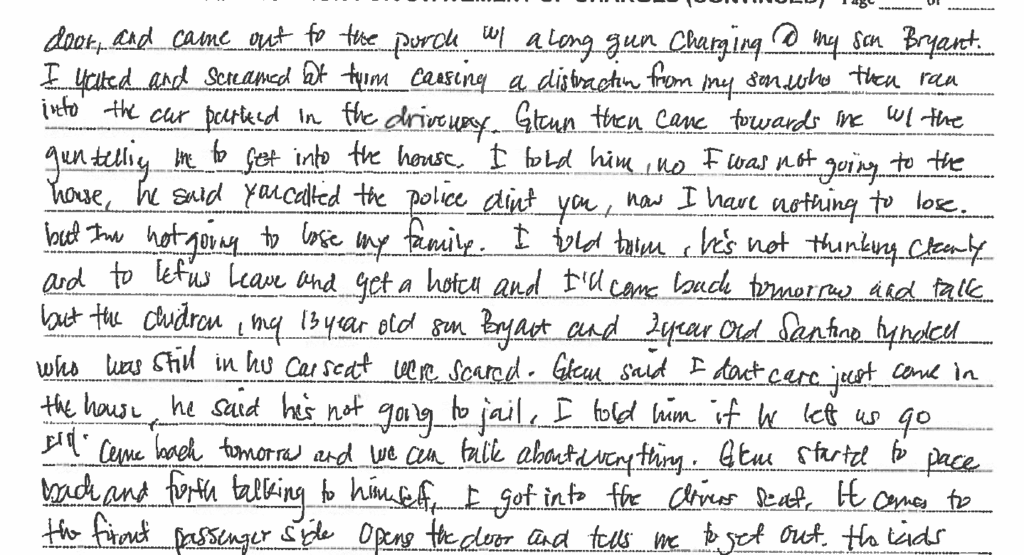 STATEMENT OF CHARGES (CONTINUED) Page ____ of ____
door, and came out to the porch w/ a long gun charging @ my son Bryant.
I yelled and screamed @ him causing a distraction from my son who then ran
into the car parked in the driveway. Glenn then came towards me w/ the
gun telling me to get into the house. I told him, no I was not going to the
house, he said you called the police dint you, now I have nothing to lose.
but I'm not going to lose my family. I told him, he's not thinking clearly
and to let us leave and get a hotel and I'll come back tomorrow and talk
but the children, my 13 year old son Bryant and 2 year old Santino Lyndell
who was still in his car seat were scared. Glenn said I dont care just come in
the house, he said he's not going to jail, I told him if he left us go
I'll come back tomorrow and we can talk about everything. Glenn started to pace
back and forth talking to himself, I got into the drivers seat. He comes to
the front passenger side opens the door and tells me to get out. the kids